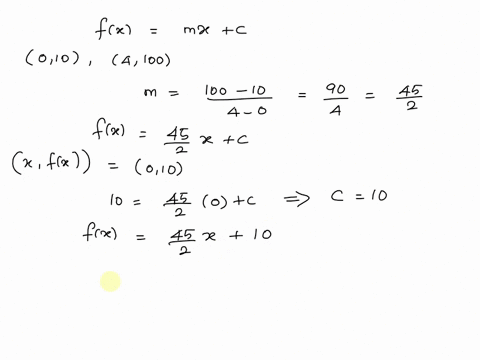 f(x) = mx + c
(0,10), (4,100)
m = 100 - 10 / 4 - 0 = 90 / 4 = 45 / 2
f(x) = 45 / 2 x + c
(x, f(x)) = (0,10)
10 = 45 / 2 (0) + c ⟹ C = 10
f(x) = 45 / 2 x + 10